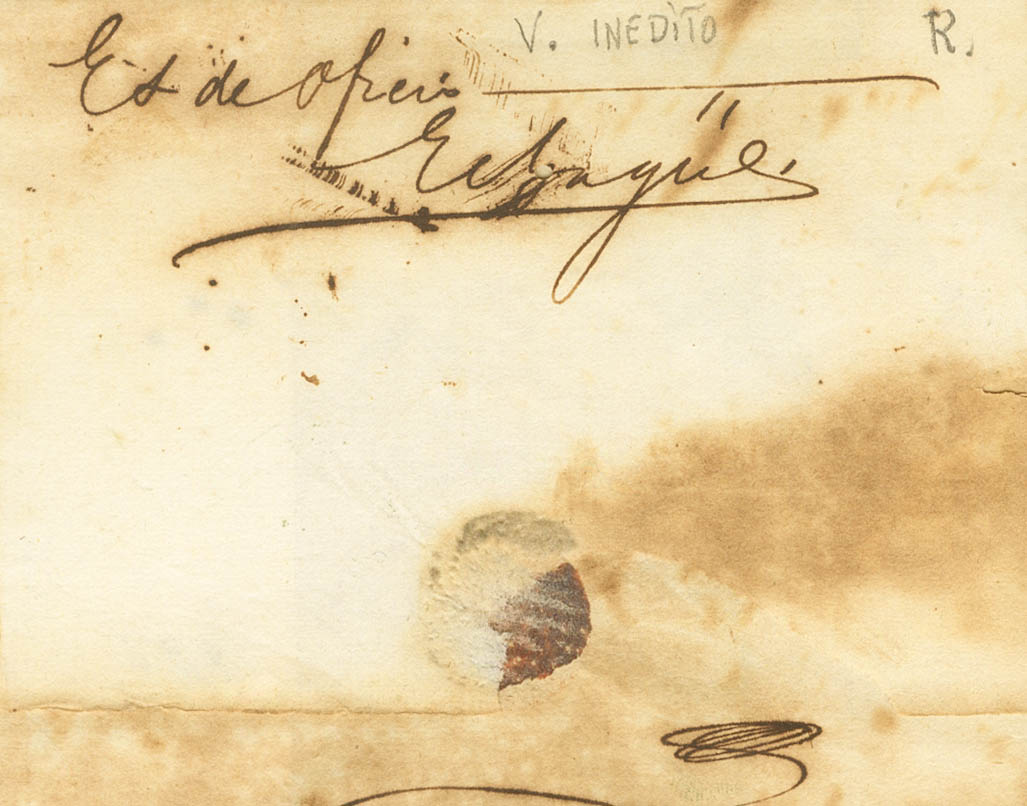 V. INEDITO R.
Es de oficio
Echagüe.